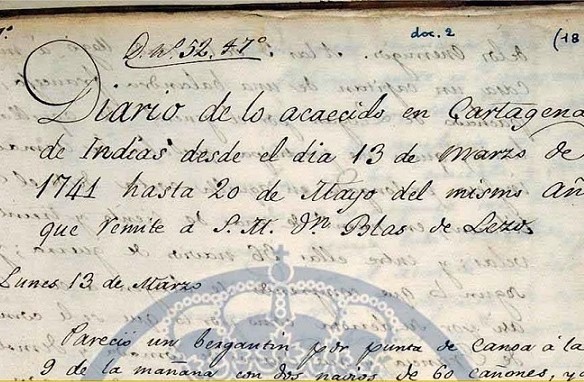 doc. 2
(18
D. nº. 52. 47º
Diario de lo acaecido en Cartagena
de Indias desde el dia 13 de Marzo de
1741 hasta 20 de Mayo del mismo Añ
que remite a S. M. Dn Blas de Lezo.
Lunes 13 de Marzo
Parecio un bergantin por punta de canoa á la
9 de la mañana con dos navios de 60 cañones, y